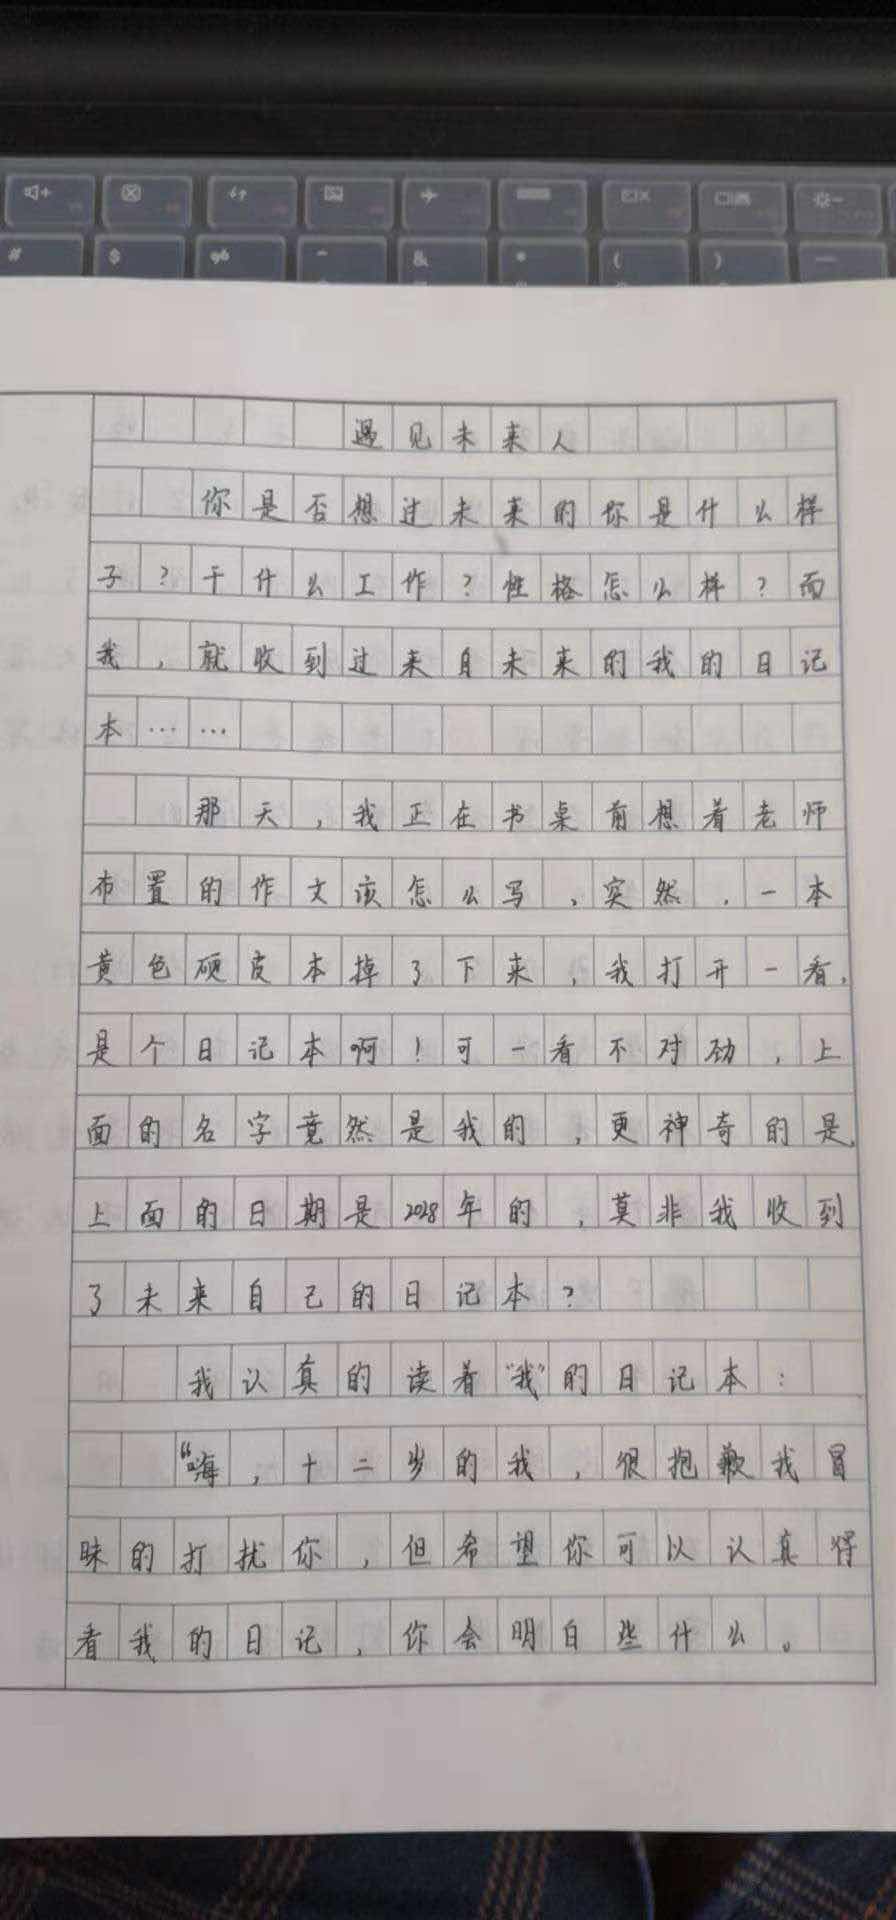 遇见未来人
你是否想过未来的你是什么样
子？干什么工作？性格怎么样？而
我，就收到过来自未来的我的日记
本……
那天，我正在书桌前想着老师
布置的作文该怎么写，突然，一本
黄色硬皮本掉了下来，我打开一看，
是个日记本啊！可一看不对劲，上
面的名字竟然是我的，更神奇的是，
上面的日期是2028年的，莫非我收到
了未来自己的日记本？
我认真的读着“我”的日记本：
“嗨，十二岁的我，很抱歉我冒
昧的打扰你，但希望你可以认真得
看我的日记，你会明白些什么。